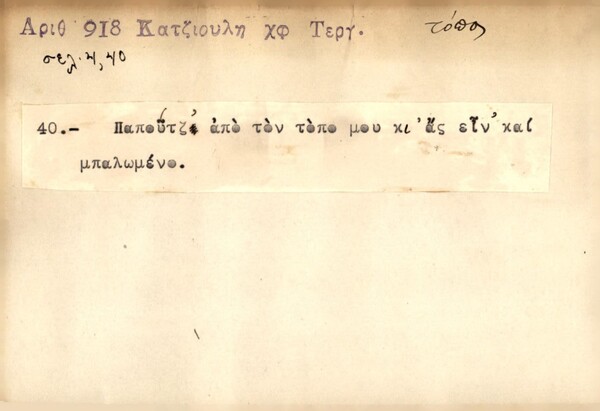 Αριθ 918 Κατζιουλη χφ Τεργ. τόπος
σελ. 4, 40
40.- Παποῦτζι ἀπὸ τὸν τὸπο μου κι' ἄς εἶν' καὶ
μπαλωμένο.